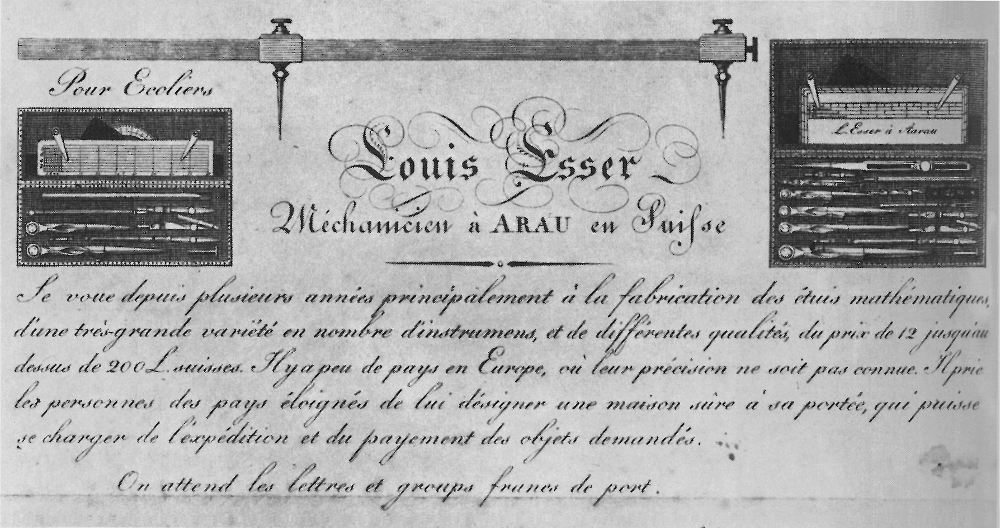 Pour Ecoliers
L. Esser à Aarau
Louis Esser
Méchanicien à ARAU en Suisse
Se voue depuis plusieurs années principalement à la fabrication des étuis mathématiques,
d'une très-grande variété en nombre d'instrumens, et de différentes qualités, du prix de 12 jusqu'au
dessus de 200 L. suisses. Il y a peu de pays en Europe, où leur précision ne soit pas connue. Il prie
les personnes des pays éloignés de lui désigner une maison sûre à sa portée, qui puisse
se charger de l'expédition et du payement des objets demandés.
On attend les lettres et groups francs de port.